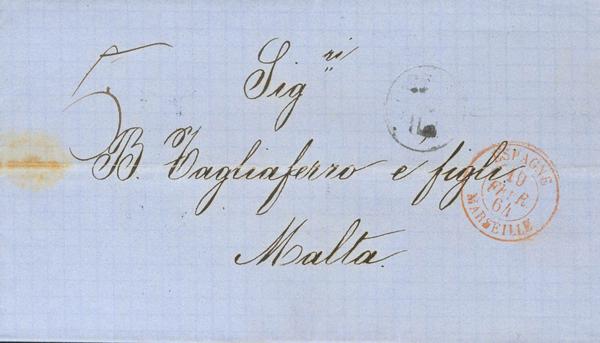 5
Sig.ri
B. Tagliaferro e figli
Malta.
ESPAGNE
10
FEVR.
64
MARSEILLE